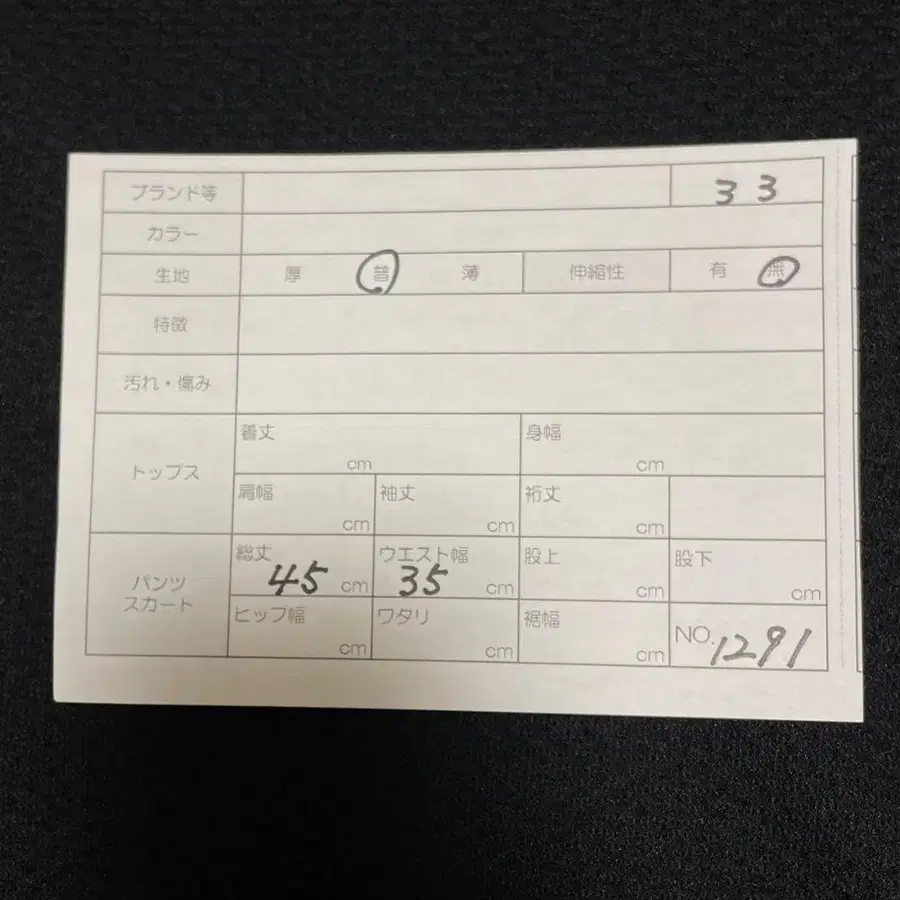 ブランド等 33
カラー
生地 厚 普 薄 伸縮性 有 無
特徴
汚れ・傷み
トップス
着丈 cm 身幅 cm
肩幅 cm 袖丈 cm 裄丈 cm
パンツ
スカート
総丈 45 cm ウエスト幅 35 cm 股上 cm 股下 cm
ヒップ幅 cm ワタリ cm 裾幅 cm NO. 1291